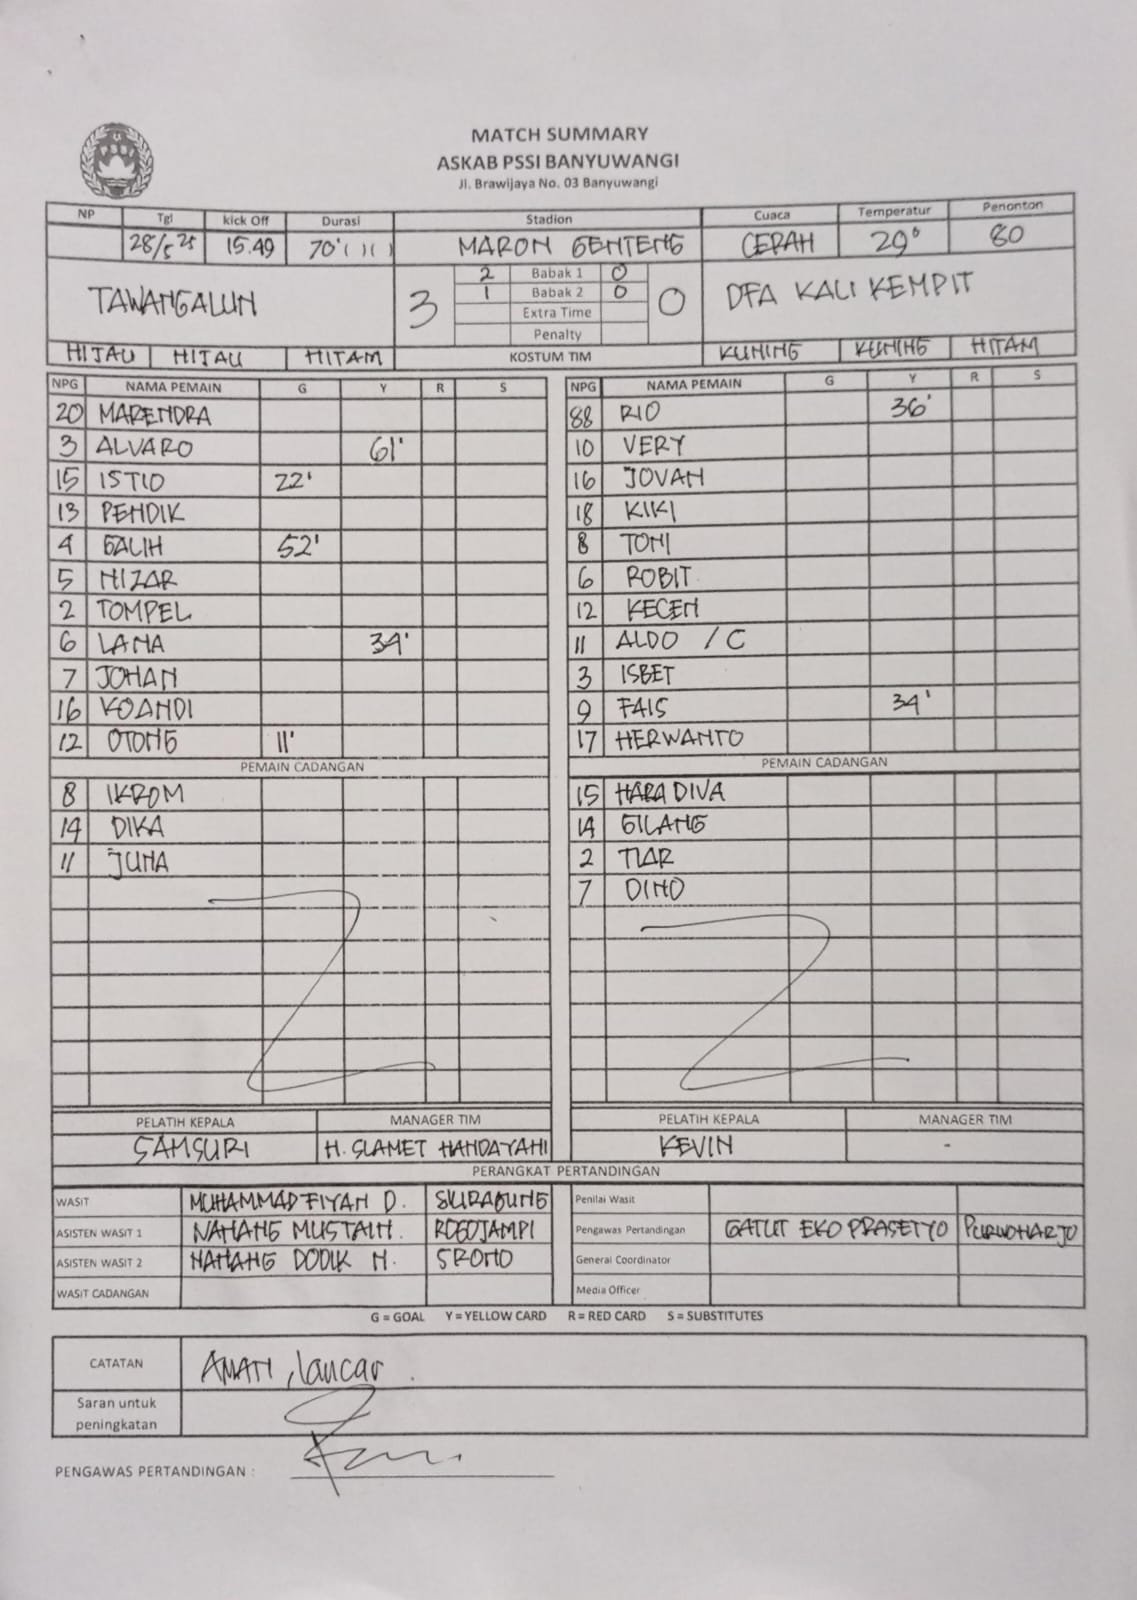 MATCH SUMMARY
ASKAB PSSI BANYUWANGI
Jl. Brawijaya No. 03 Banyuwangi
NP Tgl kick Off Durasi Stadion Cuaca Temperatur Penonton
28/5 25 15.49 70' ( ) ( ) MARON GENTENG CERAH 29° 80
TAWANGALUN 3 2 Babak 1 0 0 DFA KALI KEMPIT
1 Babak 2 0
Extra Time
Penalty
HIJAU HIJAU HITAM KOSTUM TIM KUNING KUNING HITAM
NPG NAMA PEMAIN G Y R S NPG NAMA PEMAIN G Y R S
20 MARENDRA 88 RIO 36'
3 ALVARO 61' 10 VERY
15 ISTIO 22' 16 JOVAN
13 PENDIK 18 KIKI
4 GALIH 52' 8 TONI
5 NIZAR 6 ROBIT
2 TOMPEL 12 KECEN
6 LANA 34' 11 ALDO / C
7 JOHAN 3 ISBET
16 KOANDI 9 FAIS 34'
12 OTONG 11' 17 HERWANTO
PEMAIN CADANGAN PEMAIN CADANGAN
8 IKROM 15 HARA DIVA
14 DIKA 14 GILANG
11 JUNA 2 TIAR
7 DINO
PELATIH KEPALA MANAGER TIM PELATIH KEPALA MANAGER TIM
SAMSURI H. SLAMET HANDAYANI KEVIN -
PERANGKAT PERTANDINGAN
WASIT MUHAMMAD FIYAN D. SILIRAGUNG Penilai Wasit
ASISTEN WASIT 1 NANANG MUSTAIN. ROGOJAMPI Pengawas Pertandingan GATUT EKO PRASETYO PURWOHARJO
ASISTEN WASIT 2 NANANG DODIK N. SRONO General Coordinator
WASIT CADANGAN Media Officer
G = GOAL Y = YELLOW CARD R = RED CARD S = SUBSTITUTES
CATATAN AMAN, lancar.
Saran untuk
peningkatan
PENGAWAS PERTANDINGAN :